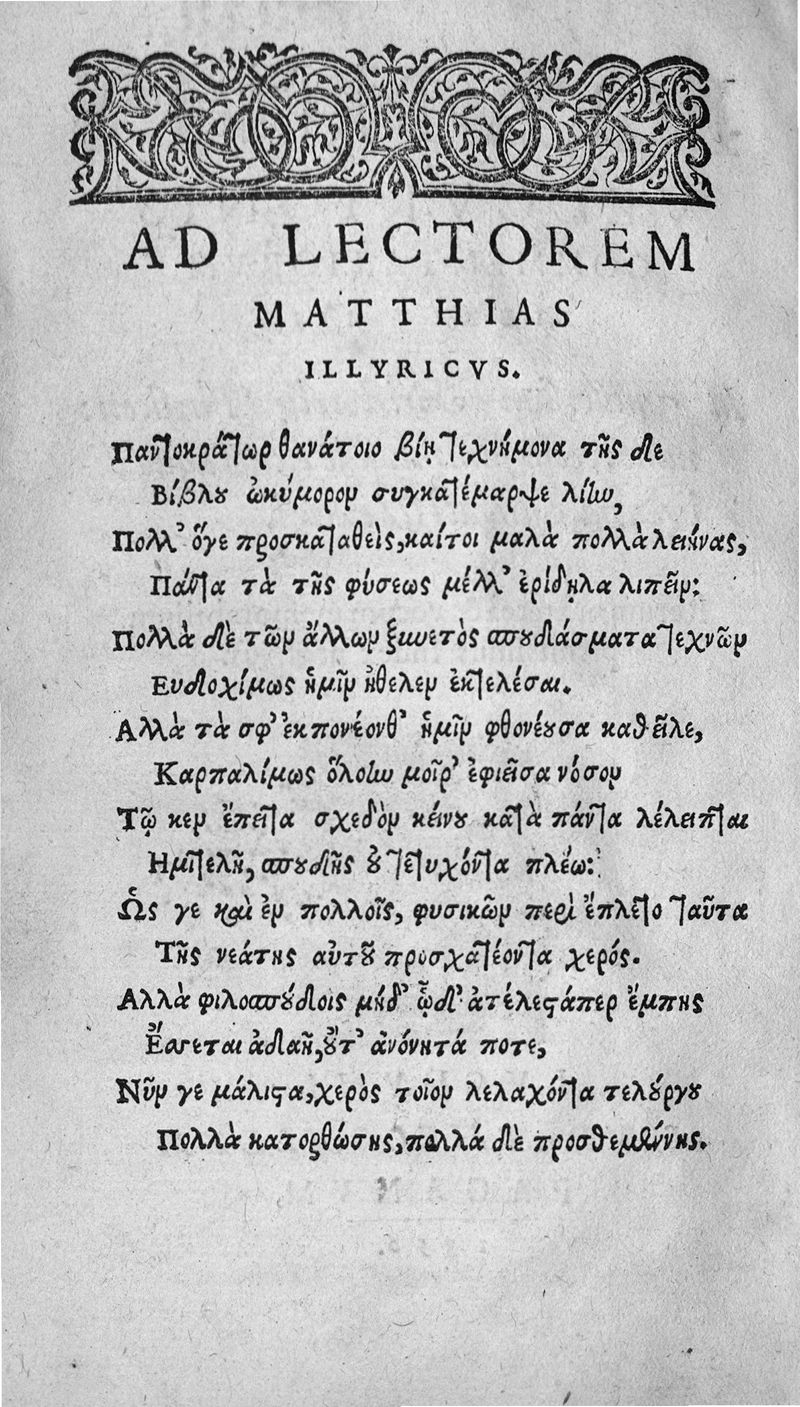 AD LECTOREM
MATTHIAS
ILLYRICVS.
Παντοκράτωρ θανάτοιο βίη τεχνήμονα τῆς δε
Βίβλου ὠκύμορον συγκατέμαρψε λίην,
Πολλ' ὅγε προσκαταθεὶς, καίτοι μαλὰ πολλὰ λειήνας,
Πάντα τὰ τῆς φύσεως μέλλ' ἐρίδηλα λιπεῖν:
Πολλὰ δὲ τῶν ἄλλων ξυνετὸς σπουδάσματα τεχνῶν
Ευδοχίμως ἡμῖν ἤθελεν ἐκτελέσαι.
Αλλὰ τὰ σφ' ἐκπονέονθ' ἡμῖν φθονέουσα καθεῖλε,
Καρπαλίμως ὅλοὴν μοῖρ' ἐφιεῖσα νόσον
Τῷ κεν ἔπειτα σχεδὸν κείνου κατὰ πάντα λέλειπται
Ημιτελῆ, σπουδῆς οὐ τετυχόντα πλέω:
Ὣς γε καὶ ἐν πολλοῖς, φυσικῶν περὶ ἔπλετο ταῦτα
Τῆς νεάτης αὐτοῦ προσχατέοντα χερός.
Αλλὰ φιλοσπούδοις μήδ' ὧδ' ἀτέλεστάπερ ἔμπης
Ἔσσεται ἀδαῆ, οὔτ' ἀνόνητά ποτε,
Νῦν γε μάλιστα, χερὸς τοῖον λελαχόντα τελουργοῦ
Πολλὰ κατορθώσης, πολλά δὲ προσθεμένης.